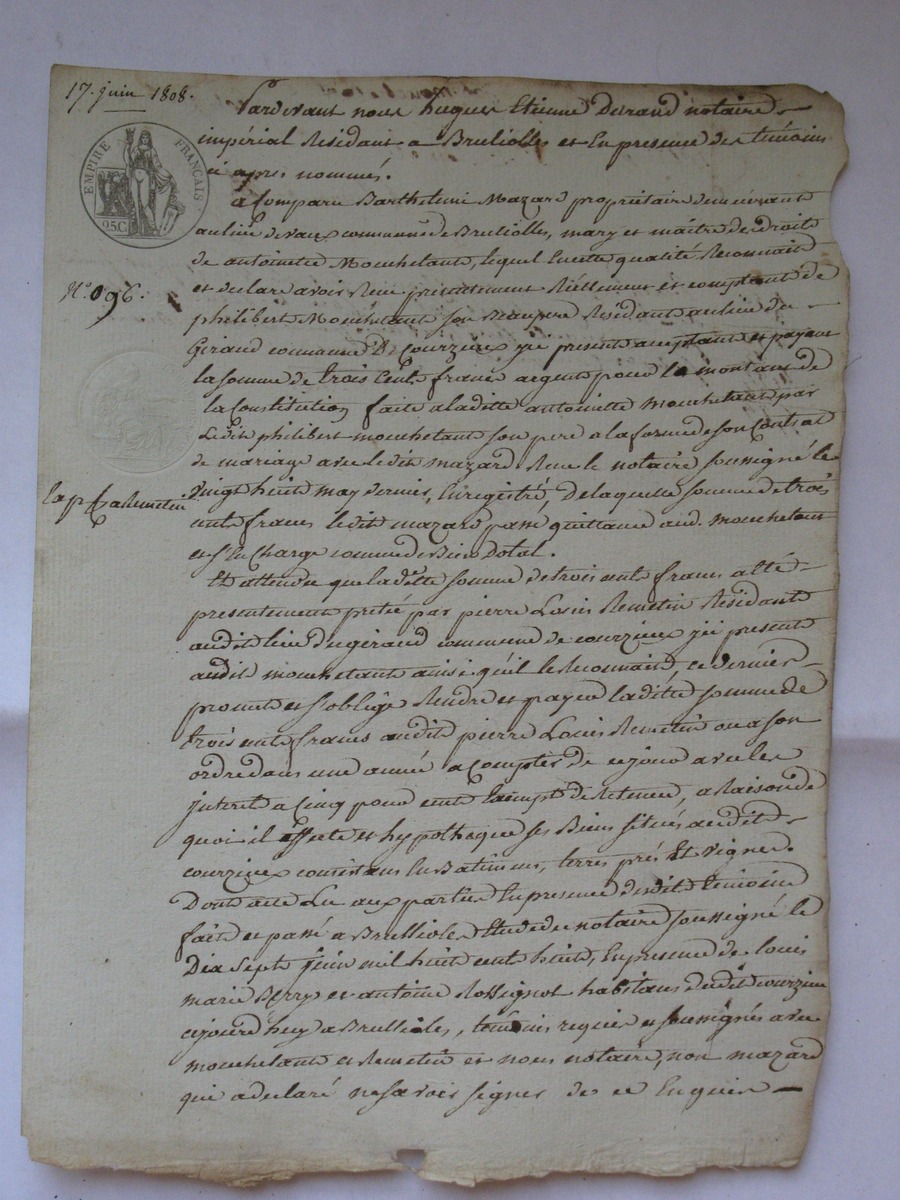 17. juin 1808.
Pardevant nous hugues Etienne Durand notaire
impérial Residant a Brulliolles et En presence des temoins
ci apres nommés.
EMPIRE FRANÇAIS
25C
a Comparu Barthelemi Mazard propriétaire demeurant
au lieu de vaux commune de Brulliolles, mary et maitre des droits
de antoinette Mouchetant, lequel En cette qualité Reconnait
et declare avoir Reçu presentement Réellement et comptant de
N.° 096.
philibert Mouchetant son Beaupere Résidant au lieu du
Giraud commune De Courzieux ici present acceptant et payant
la somme de trois Cents francs argent pour le montant de
la Constitution faite a laditte antoinette Mouchetant par
Ledit philibert mouchetant son pere a la forme de son Contrat
de mariage avec ledit mazard Reçu le notaire soussigné le
vingt huit may dernier, Enregistré, De laquelle somme de trois
cents francs ledit mazard passe quittance aud. mouchetant
et s'En Charge comme de Bien Dotal.
Et attendu que la ditte somme de trois cents francs a été
presentement pretée par pierre Louis Remetin Résidant
audit lieu du giraud commune de courzieux ici present
audit mouchetant ainsi qu'il le Reconnait, ce dernier
promet et s'oblige Rendre et payer la ditte somme de
trois cents francs audit pierre Louis Remetin ou a son
ordre dans une année a compter de ce jour avec les
interet a Cinq pour cent Exempt de Retenue, a Raison de
quoi il affecte et hypotheque ses Biens situés audit
courzieux consistans En Batimens, terres prés Et vignes.
Dont acte Lu aux parties En presence desdits temoins
fait et passé a Brulliolles Etude du notaire soussigné le
Dix Sept juin mil huit cent huit, En presence de louis
marie Berry et antoine Rossignol habitans dudit courzieux
cejourd'huy a Brullioles, temoins requis et soussignés avec
mouchetant et Remetin et nous notaire, non mazard
qui a declaré ne savoir signer de ce Enquis